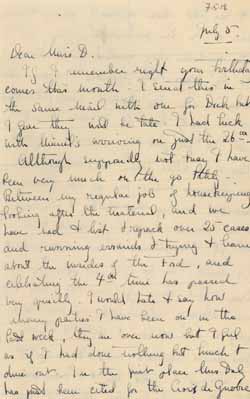 July 5.
Dear Miss D.
If I remember right your birthday
comes this month. I send this in
the same mail with one for Dick but
I fear they will be late. I had luck
with Minnie's arriving on just the 26th.
Although supposedly not busy I have
been very much on the go lately.
Between my regular job of housekeeping,
looking after the material, and we
have had to list & repack over 25 cases
and running errands & trying to learn
about the insides of the Ford, and
celebrating the 4th time has passed
very quickly. I would hate to say how
many parties I have been on in the
past week, they are over now but I feel
as if I had done nothing but lunch &
dine out. In the first place Miss
has just been cited for the Croix de Guerre